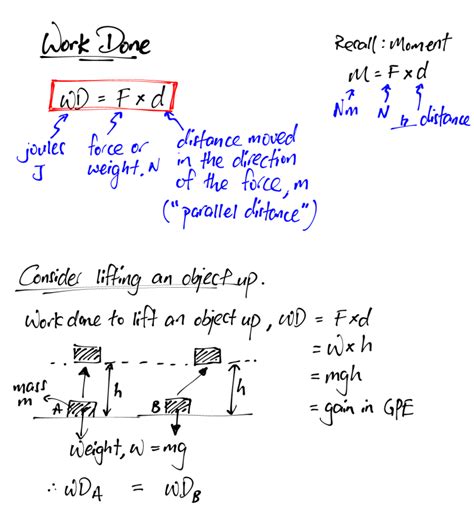 Work Done
WD = F × d
joules
J
force or
weight. N
distance moved
in the direction
of the force, m
("parallel distance")
Recall: Moment
M = F × d
Nm
N
⊥ distance
Consider lifting an object up.
Work done to lift an object up, WD = F × d
= W × h
= mgh
= gain in GPE
mass
m
A
h
B
h
Weight, W = mg
∴ WD_A = WD_B